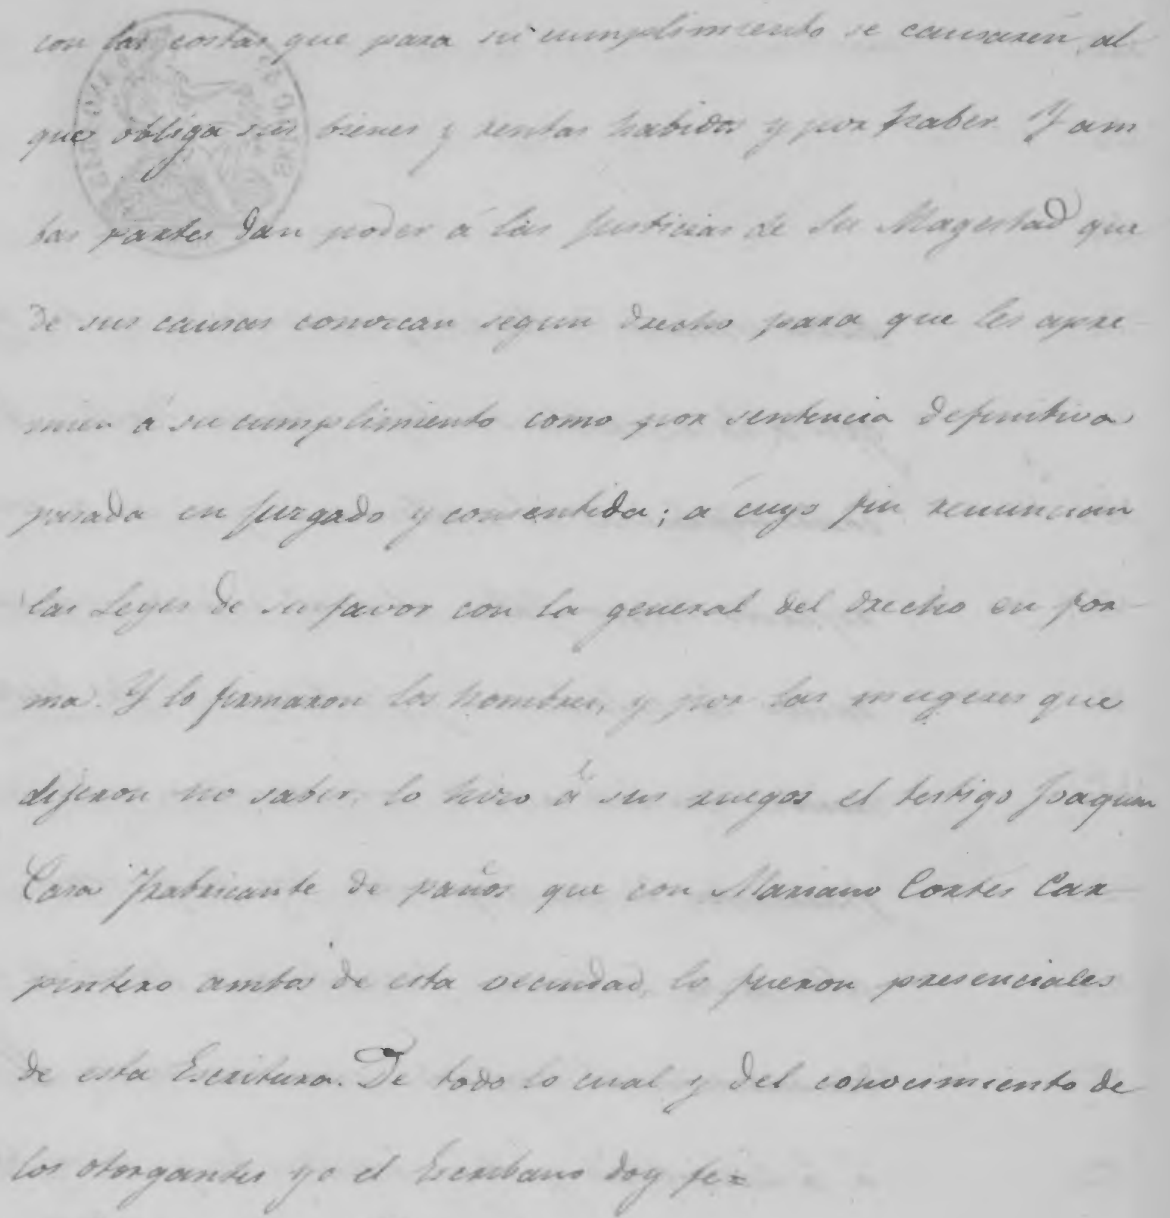 con las costas que para su cumplimiento se causaren, al
que obliga sus bienes y rentas habidos y por haber. Y am
bas partes dan poder á las Justicias de Su Magestad que
de sus causas conozcan segun drecho para que les apre
mien á su cumplimiento como por sentencia definitiva
pasada en juzgado y consentida; á cuyo fin renuncian
las Leyes de su favor con la general del drecho en for
ma. Y lo firmaron los hombres, y por las mugeres que
dijeron no saber, lo hizo á sus ruegos el testigo Joaquin
Casa fabricante de paños que con Mariano Cortés Car
pintero ambos de esta vecindad, lo fueron presenciales
de esta Escritura. De todo lo cual y del conocimiento de
los otorgantes yo el Escribano doy fe=